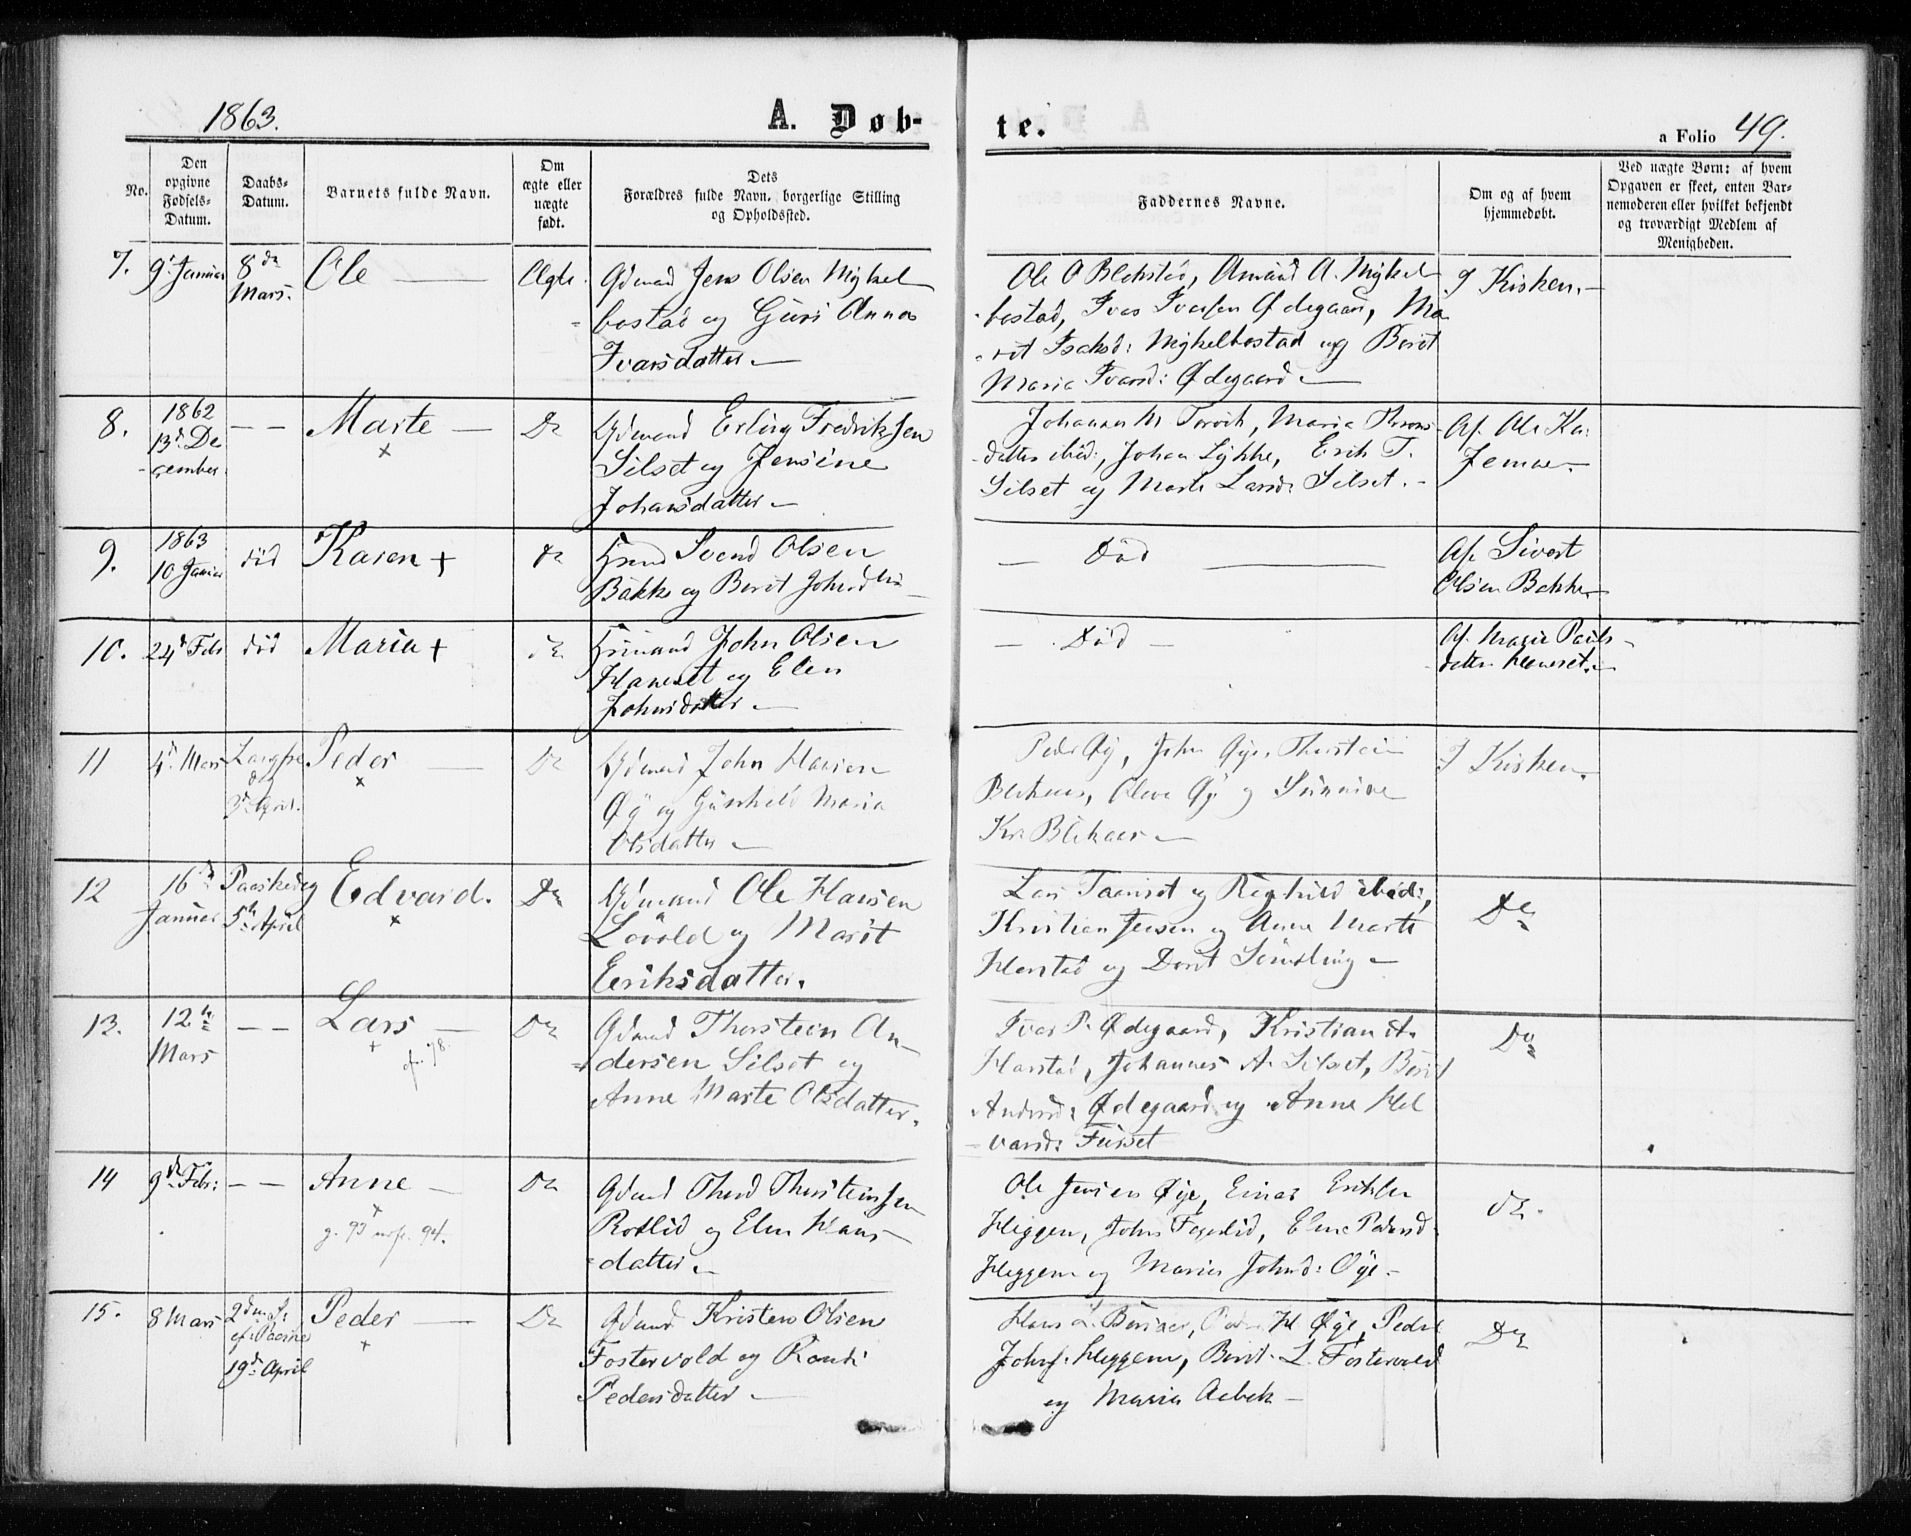 1863.
A. Døb-
te.
a Folio 49.
No.
Den
opgivne
Fødsels-
Datum.
Daabs-
Datum.
Barnets fulde Navn.
Om
ægte eller
uægte
født.
Dets
Forældres fulde Navn, borgerlige Stilling
og Opholdssted.
Faddernes Navne.
Om og af hvem
hjemmedøbt.
Ved uægte Børn: af hvem
Opgaven er skeet, enten Bar-
nemoderen eller hvilket bekjendt
og troværdigt Medlem af
Menigheden.
7.
9d Januar
8de
Mars.
Ole
Ægte
Gdmand Jens Olsen Myhkel
bostad og Guri Anna
Ivarsdatter
Ole O Blekstad, Amund A. Myhkel
bostad, Ivar Ivarsen Ødegaard, Ma
rit Isaksd: Myhkelbostad og Berit
Maria Ivarsd: Ødegaard
I Kirken.
8.
1862
13d De
cember
— —
Marte
x
Do
Gdmand Erling Fredriksen
Silset og Jensine
Johansdatter
Johannes M Torvik, Maria
datter ibid:, Johan Lykke, Erik T.
Silset og Marte Larsd: Silset.
Af Ole Ka-
9.
1863
10 Januar
død
Karen +
do
Svend Olsen
Bakke og Berit
Død
Af Sivert
Olsen Bakke
10.
24d Feb
død
Maria +
do
John Olsen
Haneset og Elen
Johnsdatter
Død
Af Marie Pauls-
datter Haneset.
11
4d Mars
Langfre
dag
3d April.
Peder
x
Do
Gdmand John Hansen
Øy og Gunhild Maria
Olsdatter
Peder Øy, John Øye, Thorstein
og Sunnive
I Kirken.
12
16d
Januar
Paaskedag
5te April
Edvard.
x
Do
Gdmand Ole Hansen
Løvold og Marit
Eriksdatter.
Lars og Ragnhild ibid:,
Kristian Jensen og Anne Marte
Harstad og
Do
13.
12te
Mars
— —
Lars
+
78.
Do
Gdmand Thorstein An-
dersen Silset og
Anne Marte Olsdatter.
Ivar P. Ødegaard, Kristian A.
Harstad, Johannes A. Silset, Berit
Andersd: Ødegaard og Anne Hal
varsd: Fusset
Do
14
9de Feb:
— —
Anne
x
94.
Do
Gdmand Thord Thorsteinsen
Rotlid og Elen Hans-
datter.
Ole Jensen Øye, Einar Eriksen
Heggem, John Fagerlid, Elene Pedersd
Heggem og Maria Johnsd: Øye.
do.
15.
8 Mars
19de April
Peder
+
Do
Gdmand Kristen Olsen
Fostervold og Randi
Pedersdatter
Hans L. H Øye, Peder
Johns: Heggem, Berit L. Fostervold
og Maria
Do